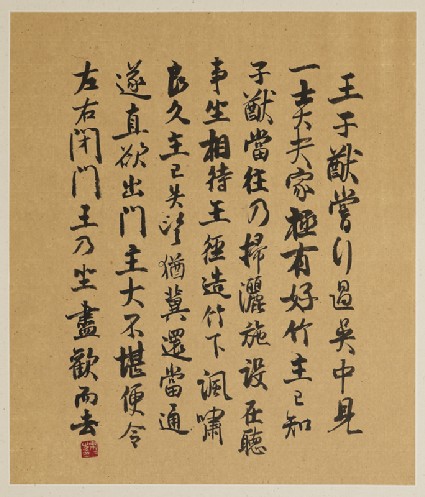 王子猷嘗行過吳中見
一士大夫家極有好竹主已知
子猷當往乃掃灑施設在聽
事坐相待王徑造竹下諷嘯
良久主已失望猶冀還當通
遂直欲出門主大不堪便令
左右閉門王乃坐盡歡而去